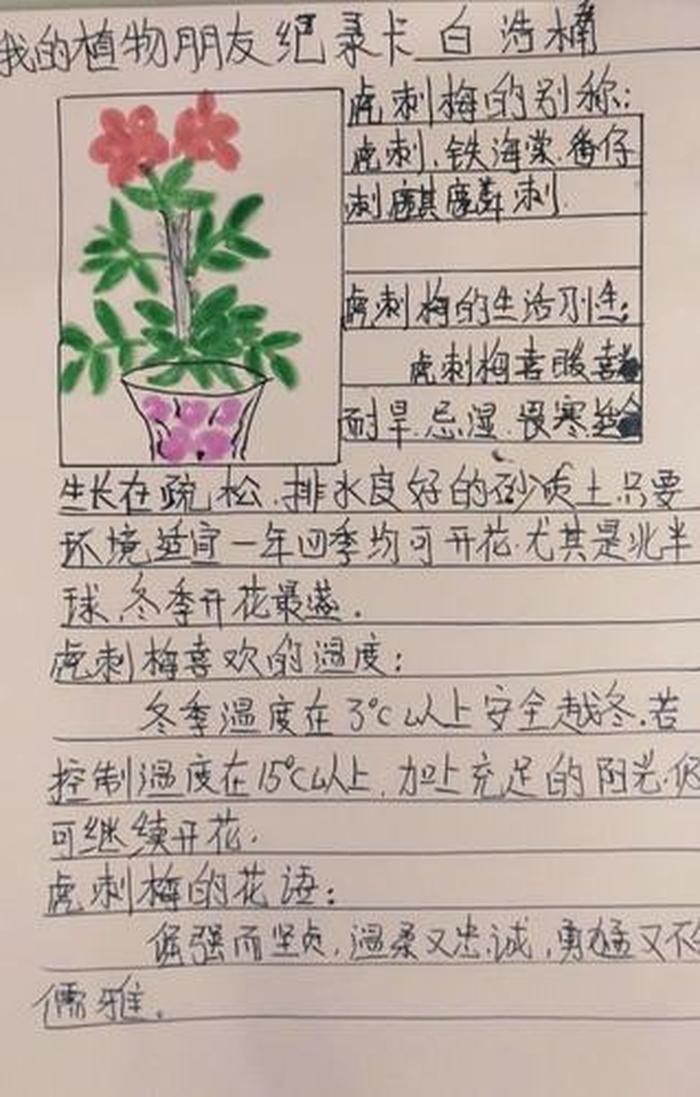 我的植物朋友纪录卡 白浩楠
虎刺梅的别称:
虎刺、铁海棠、番仔
刺麒麟刺.
虎刺梅的生活习生:
虎刺梅喜暖喜
耐旱.忌湿.畏寒.适合
生长在疏松、排水良好的砂质土.只要
环境适宜一年四季均可开花.尤其是北半
球.冬季开花最盛.
虎刺梅喜欢的温度:
冬季温度在3℃以上安全越冬.若
控制温度在15℃以上,加上充足的阳光.便
可继续开花.
虎刺梅的花语:
倔强而坚贞,温柔又忠诚,勇猛又不
儒雅.